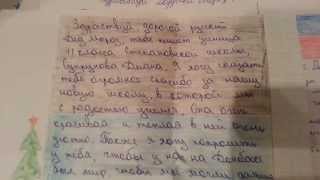 Здравствуй дорогой
Дед Мороз, тебе пишет ученица
11 класса Стахановской школы,
Диана. Я хочу сказать
тебе огромное спасибо за нашу
новую школу, в которой мы
с радостью учимся. Она очень
красивая и теплая в ней очень
уютно. Также я хочу попросить
у тебя, чтобы у нас на Донбассе
был мир, чтобы мы могли